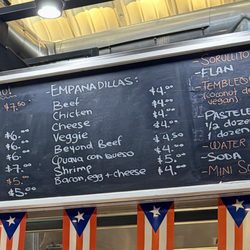 -EMPANADILLAS:
Beef $4.00
Chicken $4.00
Cheese $4.00
Veggie $4.00
Beyond Beef
Guava con queso
Shrimp $5.00
Bacon, egg + cheese
$7.50
$6.00
$6.00
$7.00
$5.00
$5.00
SORULLITO
- FLAN
- TEMBLE
(coconut
vegan)
PASTELE
1/2 doze
1 dozen
- WATER
SODA
- MINI S